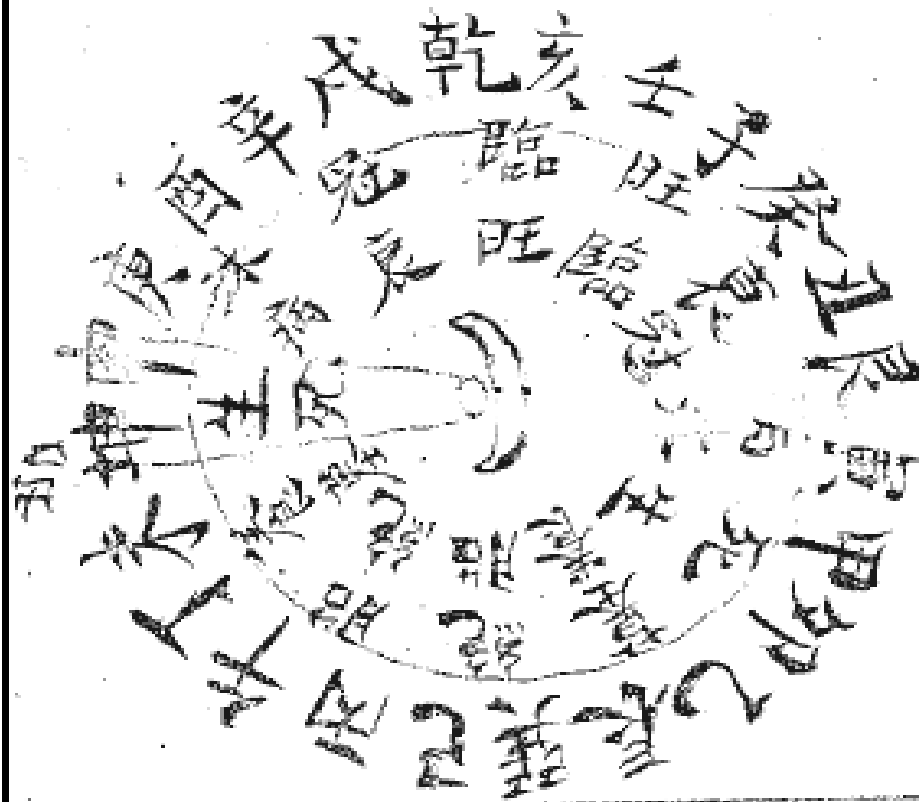 乾亥壬子癸丑艮寅甲卯乙辰巽巳丙午丁未坤申庚酉辛戌
冠臨旺衰
死墓絕胎養生沐
病衰旺臨冠
生養胎絕墓死